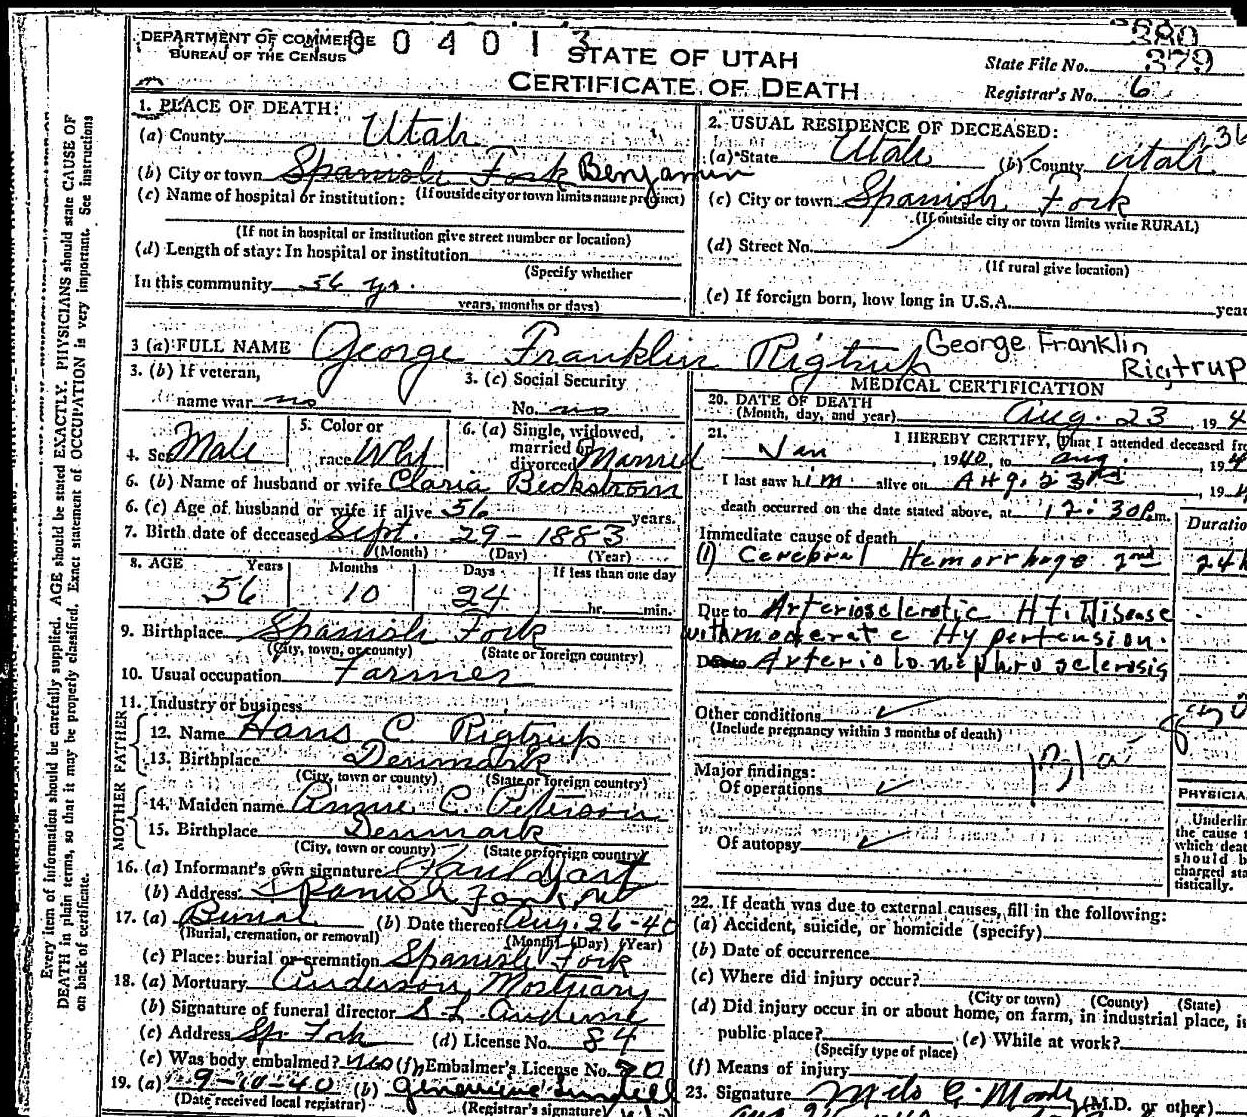 DEPARTMENT OF COMMERCE
BUREAU OF THE CENSUS
004013
STATE OF UTAH
CERTIFICATE OF DEATH
380
State File No. 379
Registrar's No. 6
Every item of information should be carefully supplied. AGE should be stated EXACTLY. PHYSICIANS should state CAUSE OF
DEATH in plain terms, so that it may be properly classified. Exact statement of OCCUPATION is very important. See instructions
on back of certificate.
1. PLACE OF DEATH:
(a) County Utah
(b) City or town Spanish Fork Benjamin
(If outside city or town limits name precinct)
(c) Name of hospital or institution:
(If not in hospital or institution give street number or location)
(d) Length of stay: In hospital or institution
(Specify whether
In this community 56 yrs.
years, months or days)
2. USUAL RESIDENCE OF DECEASED:
(a) State Utah (b) County Utah
(c) City or town Spanish Fork
(If outside city or town limits write RURAL)
(d) Street No.
(If rural give location)
(e) If foreign born, how long in U.S.A.
3 (a) FULL NAME George Franklin Rigtrup George Franklin
Rigtrup
3. (b) If veteran,
name war no
3. (c) Social Security
No. no
4. Sex Male
5. Color or
race Wht
6. (a) Single, widowed,
married or
divorced Married
6. (b) Name of husband or wife Claria Beckstrom
6. (c) Age of husband or wife if alive 56 years.
7. Birth date of deceased Sept. 29 - 1883
(Month) (Day) (Year)
8. AGE Years Months Days If less than one day
56 10 24 hr. min.
9. Birthplace Spanish Fork
(City, town, or county) (State or foreign country)
10. Usual occupation Farmer
11. Industry or business
FATHER
12. Name Hans C Rigtrup
13. Birthplace Denmark
(City, town or county) (State or foreign country)
MOTHER
14. Maiden name Annie C. Peterson
15. Birthplace Denmark
(City, town or county) (State or foreign country)
16. (a) Informant's own signature
(b) Address Spanish Fork, Ut
17. (a) Burial (b) Date thereof Aug. 26-40
(Burial, cremation, or removal) (Month) (Day) (Year)
(c) Place: burial or cremation Spanish Fork
18. (a) Mortuary Anderson Mortuary
(b) Signature of funeral director
(c) Address Sp Fork (d) License No. 84
(e) Was body embalmed? (f) Embalmer's License No.
19. (a) 9-10-40 (b) Genevieve
(Date received local registrar) (Registrar's signature)
MEDICAL CERTIFICATION
20. DATE OF DEATH
(Month, day, and year) Aug. 23, 194
21. I HEREBY CERTIFY, That I attended deceased
Jan, 1940, to Aug., 194
I last saw him alive on Aug. 23rd, 194
death occurred on the date stated above, at 12:30 P.m.
Duratio
Immediate cause of death
(1) Cerebral Hemorrhage 2nd 24
Due to Arteriosclerotic Ht. Disease
with moderate Hypertension.
Arteriolonephrosclerosis
Other conditions
(Include pregnancy within 3 months of death)
Major findings:
Of operations
Of autopsy
PHYSICIA
Underlin
the cause
which deat
should b
charged sta
tistically.
22. If death was due to external causes, fill in the following:
(a) Accident, suicide, or homicide (specify)
(b) Date of occurrence
(c) Where did injury occur?
(City or town) (County) (State)
(d) Did injury occur in or about home, on farm, in industrial place, i
public place? (e) While at work?
(Specify type of place)
(f) Means of injury
23. Signature Milo C. Moody (M.D. or other)